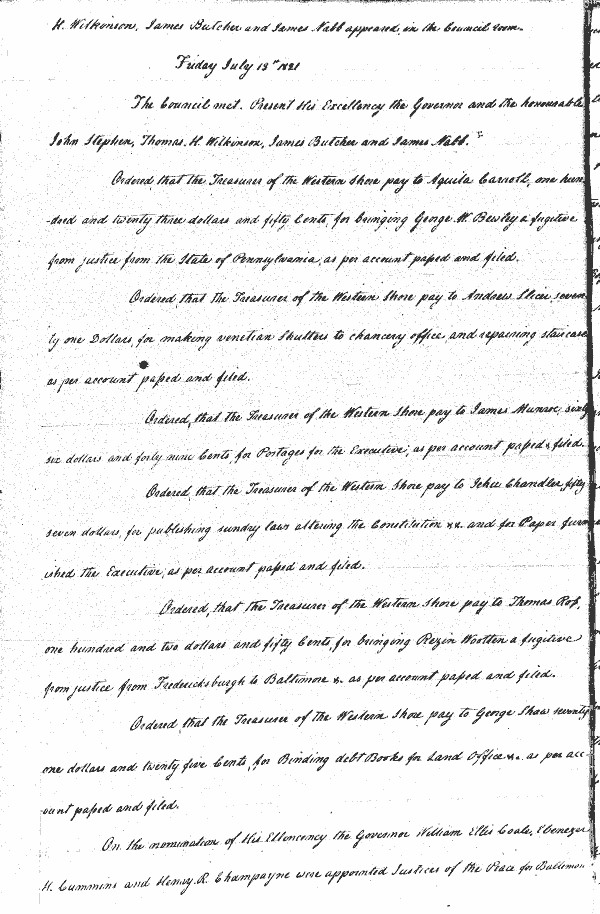 H. Wilkinson, James Butcher and James Nabb appeared in the Council room.
Friday July 13th 1821
The Council met. Present His Excellency the Governor and the honourable
John Stephen, Thomas H. Wilkinson, James Butcher and James Nabb.
Ordered that the Treasurer of the Western Shore pay to Aquila Carroll, one hun
-dred and twenty three dollars and fifty Cents, for bringing George W. Bewley a fugitive
from justice from the State of Pennsylvania, as per account paſsed and filed.
Ordered, that the Treasurer of the Western Shore pay to Andrew Slicer seven
ty one Dollars, for making venetian Shutters to chancery office, and repairing staircase
as per account paſsed and filed.
Ordered, that the Treasurer of the Western Shore pay to James Munroe, sixty
six dollars and forty nine Cents, for Postages for the Executive, as per account paſsed & filed.
Ordered, that the Treasurer of the Western Shore pay to Jehu Chandler, fifty
seven dollars, for publishing sundry laws altering the Constitution &c. and for Paper furn
ished the Executive, as per account paſsed and filed.
Ordered, that the Treasurer of the Western Shore pay to Thomas Roſs,
one hundred and two dollars and fifty Cents, for bringing Rezin Wootten a fugitive
from justice from Fredericksburgh to Baltimore &. as per account paſsed and filed.
Ordered, that the Treasurer of the Western Shore pay to George Shaw seventy
one dollars and twenty five Cents, for Binding debt Books for Land Office &c. as per acc-
ount paſsed and filed.
On the nomination of His Ellencency the Governor William Ellis Coale, Ebenezer
H. Cummins and Henry. R. Champayne were appointed Justices of the Peace for Baltimore